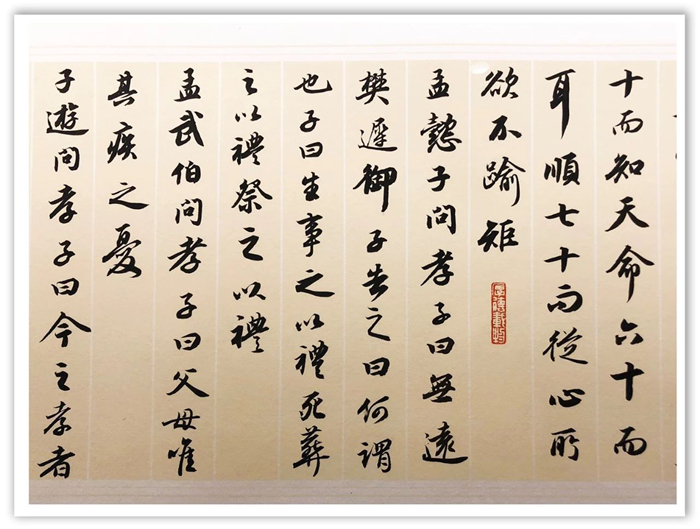 十而知天命六十而
耳順七十而從心所
欲不踰矩
厚德載物
孟懿子問孝子曰無違
樊遲御子告之曰何謂
也子曰生事之以禮死葬
之以禮祭之以禮
孟武伯問孝子曰父母唯
其疾之憂
子遊問孝子曰今之孝者